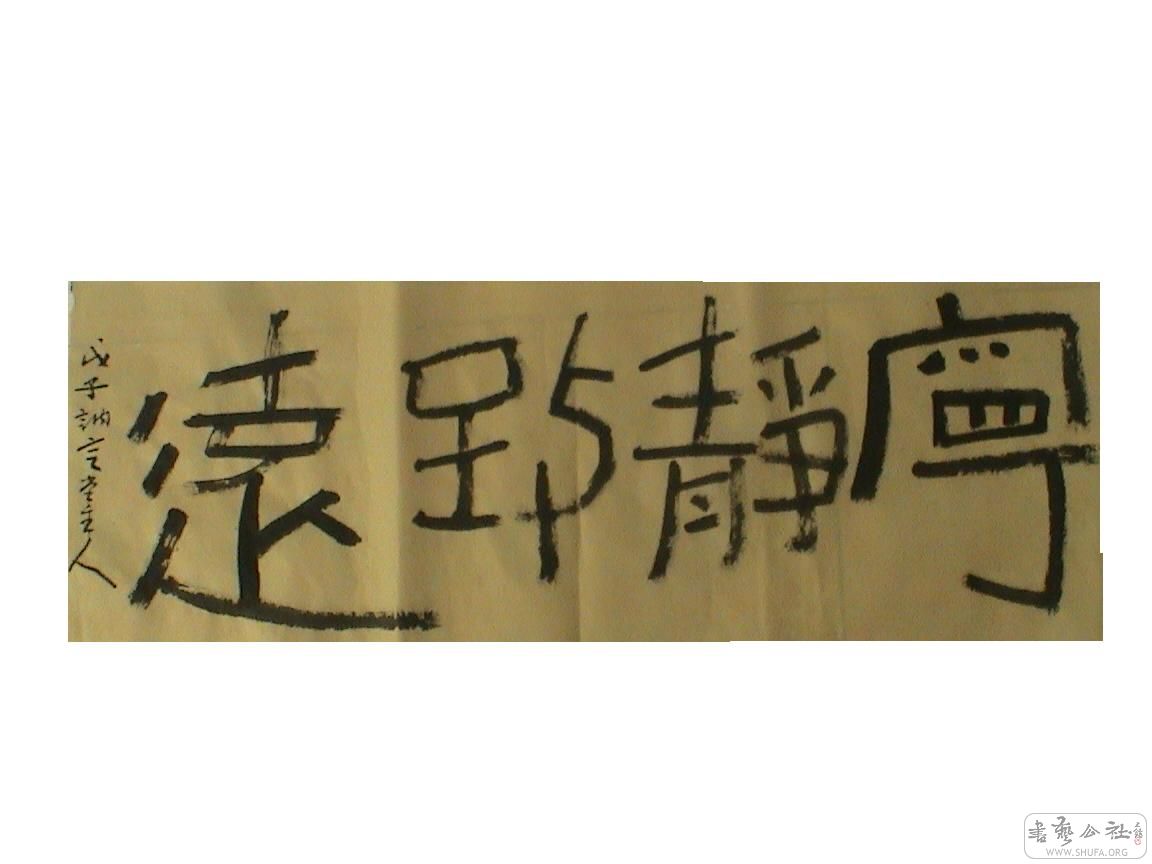 寧靜致遠
戊子訥言堂主人
書藝公社
WWW.SHUFA.ORG